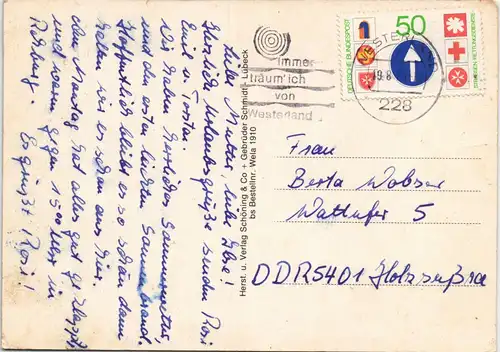 Liebe Mutter, liebe Ilse!
Herzliche Urlaubsgrüße senden Rosi
Emil u. Torsten.
Wir haben herrliches Sommerwetter,
und den ersten leichten Sonnenbrand.
Hoffentlich bleibt es so schön dann
halten wir es schon aus hier.
Am Montag hat alles gut geklappt,
und waren gegen 15 00 Uhr in
Es grüßt Rosi!
Herst. u. Verlag Schöning & Co + Gebrüder Schmidt - Lübeck
bs Bestellnr. Wela 1910
immer
träum' ich
von
Westerland
228
DEUTSCHE BUNDESPOST
50
STRASSEN-RETTUNGSDIENSTE
Frau
Berta Wobser
Wattufer 5
DDR 5401 Holzsußra